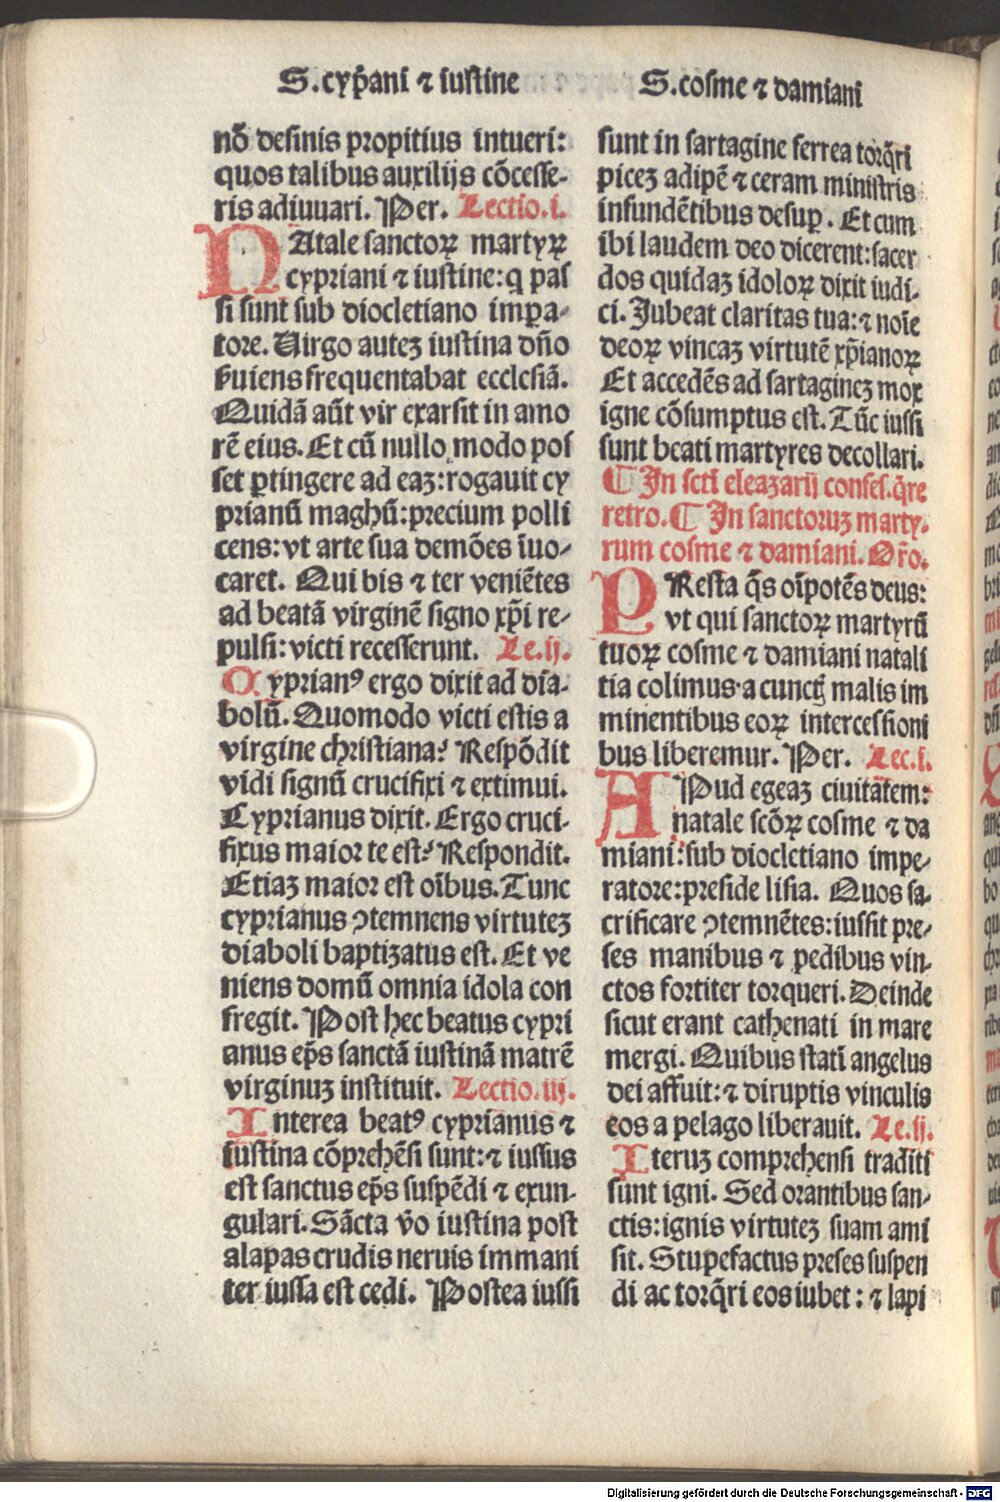 S.cyp̄ani ⁊ iustine
nō desinis propitius intueri:
quos talibus auxilijs cōcesse-
ris adiuuari. Per. Lectio.i.
NAtale sanctoꝝ martyꝝ
cypriani ⁊ iustine:q̇ pas
si sunt sub diocletiano imꝑa-
tore. Uirgo auteꝫ iustina dn̄o
ẜuiens frequentabat ecclesiā.
Quidā aūt vir exarsit in amo
rē eius. Et cū nullo modo pos
set ꝑtingere ad eaꝫ:rogauit cy
prianū maghū:precium polli
cens:vt arte sua demōes iuo-
caret. Qui bis ⁊ ter veniētes
ad beatā virginē signo xp̄i re-
pulsi:victi recesserunt. Le.ij.
Cyprianꝰ ergo dixit ad dia-
bolū. Quomodo victi estis a
virgine christiana? Respōdit
vidi signū crucifixi ⁊ extimui.
Cyprianus dixit. Ergo cruci-
fixus maior te est? Respondit.
Etiaꝫ maior est oībus. Tunc
cyprianus ꝯtemnens virtuteꝫ
diaboli baptizatus est. Et ve
niens domū omnia idola con
fregit. Post hec beatus cypri
anus ep̄s sanctā iustinā matrē
virginuꝫ instituit. Lectio.iij.
Interea beatꝰ cyprianus ⁊
iustina cōprehēsi sunt:⁊ iussus
est sanctus ep̄s suspēdi ⁊ exun-
gulari. Sācta v̄o iustina post
alapas crudis neruis immani
ter iussa est cedi. Postea iussi
S.cosme ⁊ damiani
sunt in sartagine ferrea torq̄ri
piceꝫ adipē ⁊ ceram ministris
infundētibus desuꝑ. Et cum
ibi laudem deo dicerent:sacer
dos quidaꝫ idoloꝝ dixit iudi-
ci. Jubeat claritas tua:⁊ noīe
deoꝝ vincaꝫ virtutē xp̄ianoꝝ
Et accedēs ad sartagineꝫ mox
igne cōsumptus est. Tūc iussi
sunt beati martyres decollari.
¶ In scti eleazarij confes.q̄re
retro. ¶ In sanctoruꝫ marty-
rum cosme ⁊ damiani. Or̄o.
PResta q̄s oīpotēs deus:
vt qui sanctoꝝ martyrū
tuoꝝ cosme ⁊ damiani natali
tia colimus·a cunctꝭ malis im
minentibus eoꝝ intercessioni
bus liberemur. Per. Lec.i.
APud egeaꝫ ciuitatem:
natale scōꝝ cosme ⁊ da
miani:sub diocletiano impe-
ratore:preside lisia. Quos sa-
crificare ꝯtemnētes:iussit pre-
ses manibus ⁊ pedibus vin-
ctos fortiter torqueri. Deinde
sicut erant cathenati in mare
mergi. Quibus statī angelus
dei affuit:⁊ diruptis vinculis
eos a pelago liberauit. Le.ij.
Iteruꝫ comprehensi traditi
sunt igni. Sed orantibus san-
ctis:ignis virtuteꝫ suam ami
sit. Stupefactus preses suspen
di ac torq̄ri eos iubet: ⁊ lapi
Digitalisierung gefördert durch die Deutsche Forschungsgemeinschaft - DFG